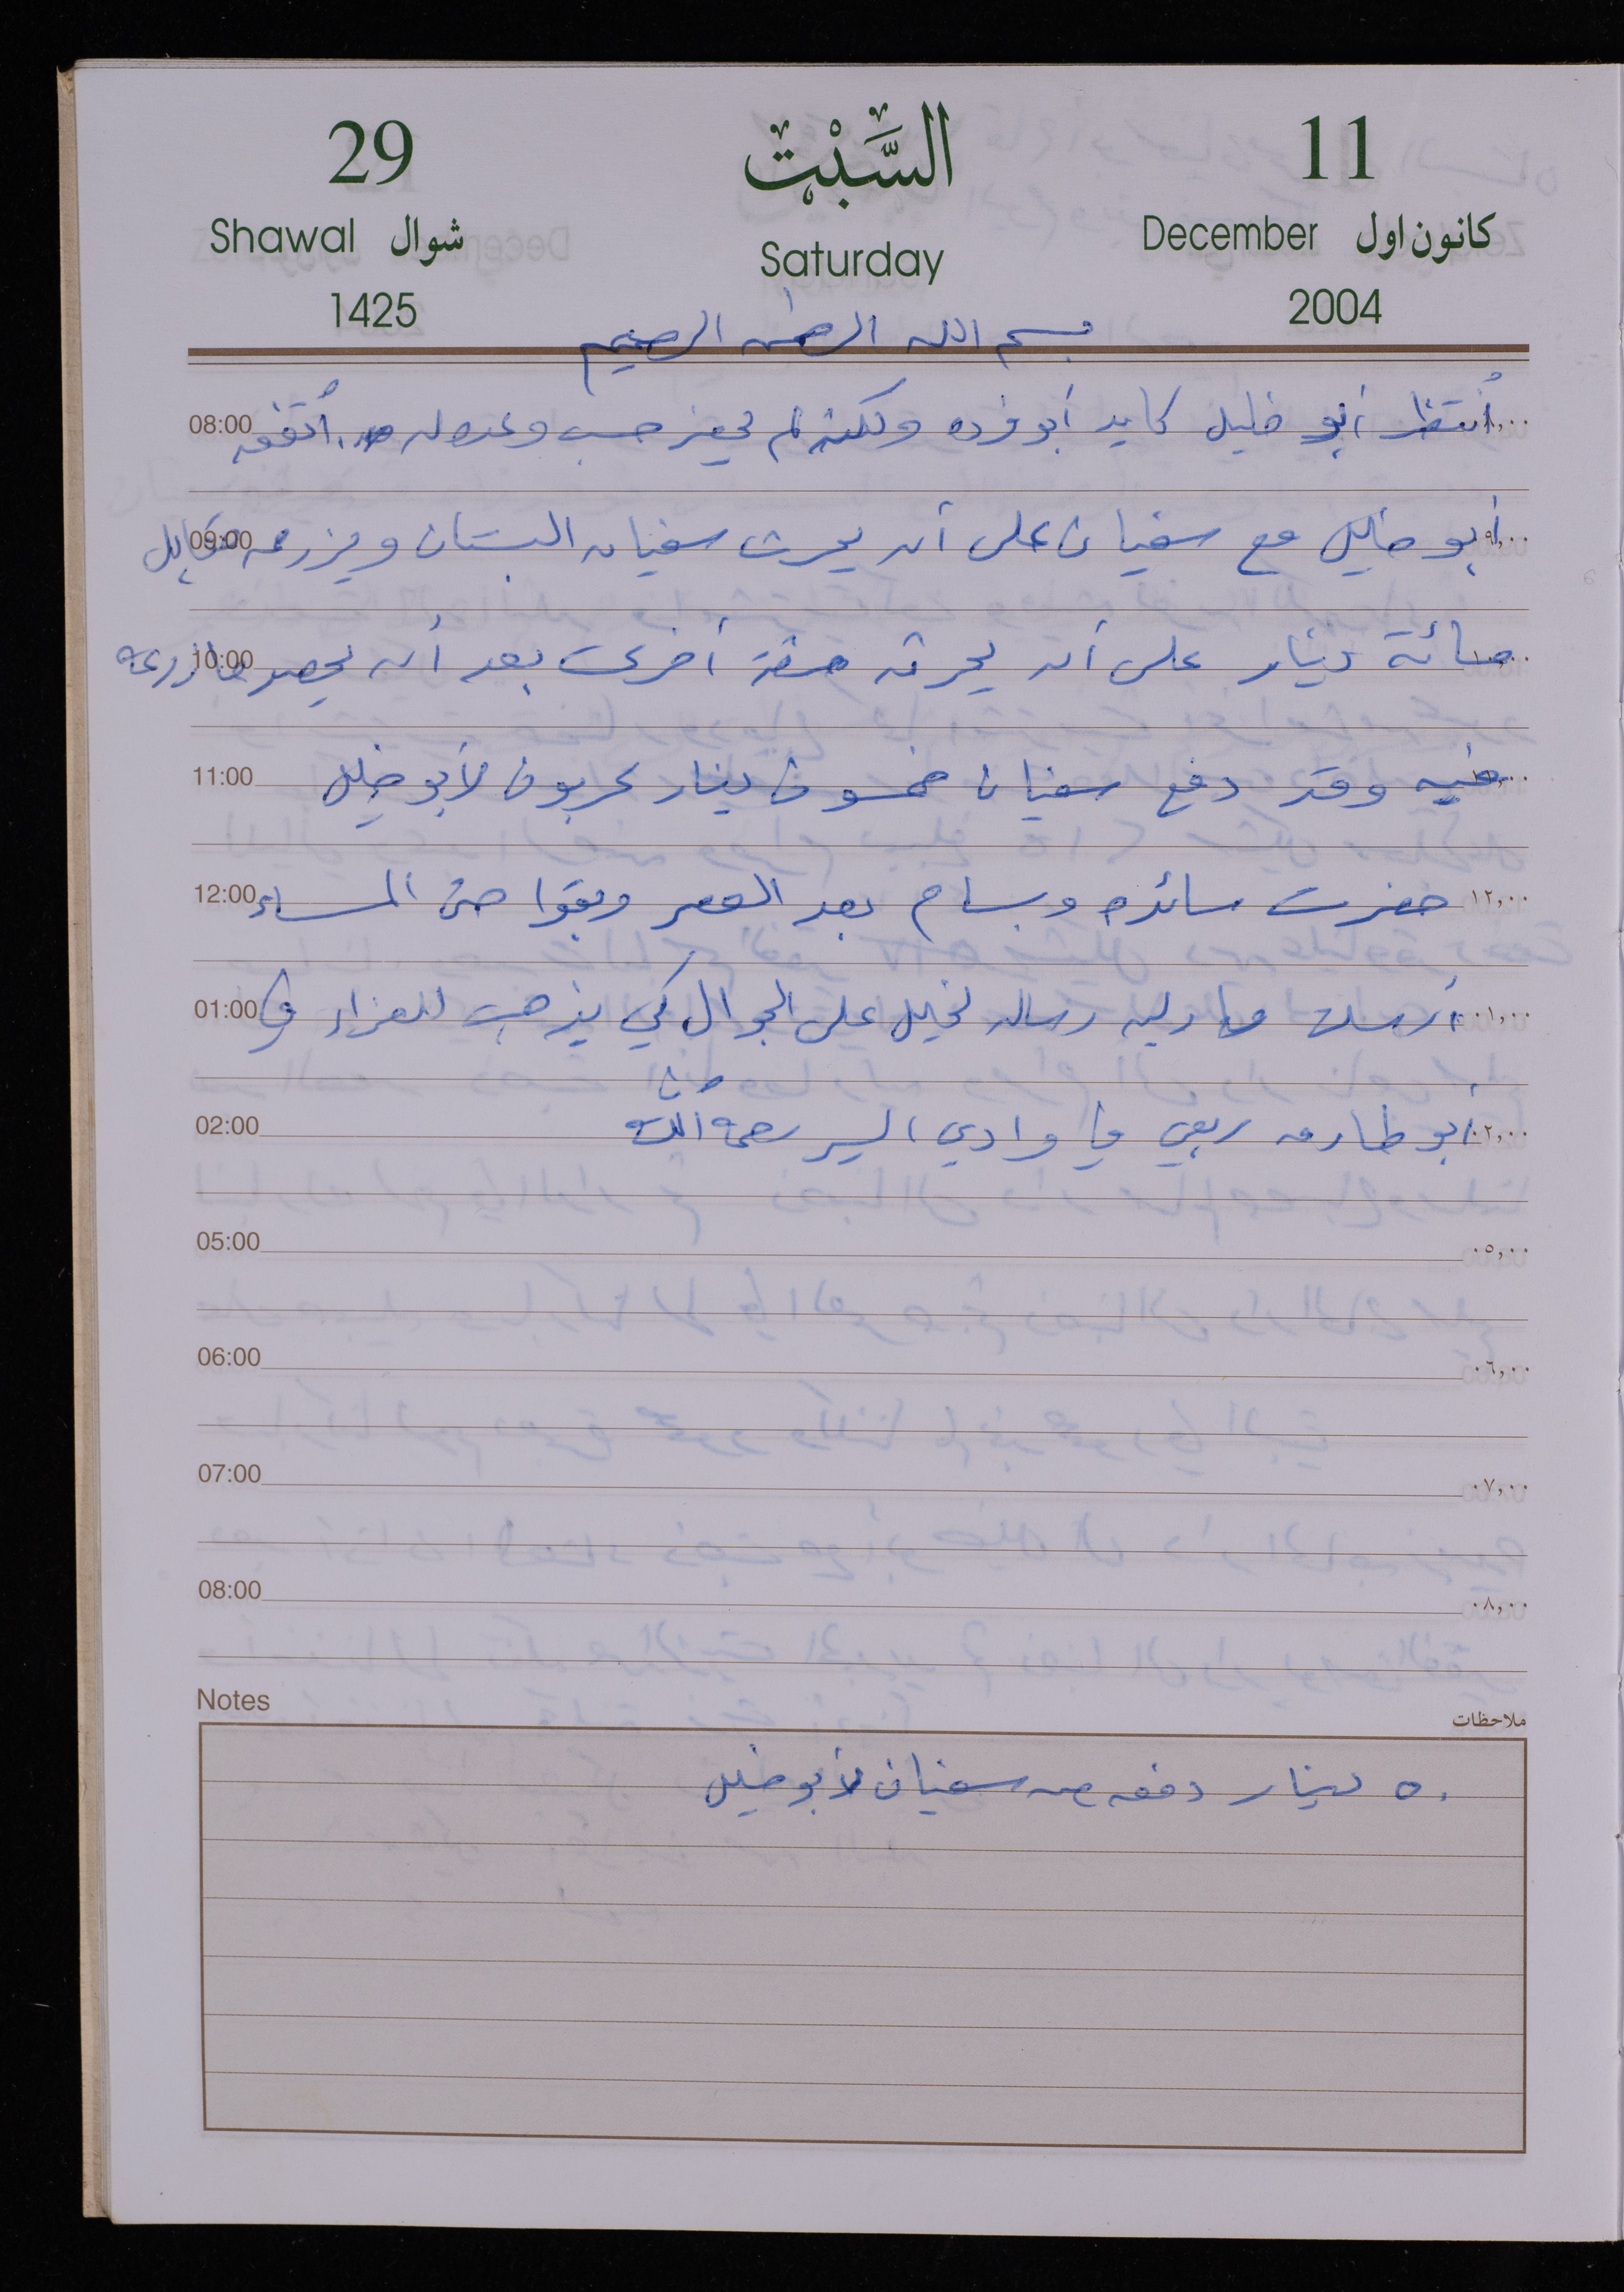 29 السَّبْت 11
Shawal شوال Saturday December كانون اول
1425 2004
بسم الله الرحمن الرحيم
08:00 أنتظر أبو خليل كايد أبو فرده ولكنه لم يحضر حسب وعده له. أتفق ٠٨,٠٠
09:00 أبو خليل مع سفيان على أن يحرث سفيان البستان ويزرعه مقابل ٠٩,٠٠
10:00 مائة دينار على أن يحرثه مرة أخرى بعد أن يحصد ما زرعه ١٠,٠٠
11:00 فيه وقد دفع سفيان خمسون دينار عربون لأبو خليل ١١,٠٠
12:00 حضرت سائده وبسام بعد العصر وبقوا حتى المساء ١٢,٠٠
01:00 أرسلت رساله لخليل على الجوال كي يذهب للعزاء في ٠١,٠٠
02:00 أبو طارق ربعي في وادي السير رحمه الله ٠٢,٠٠
05:00 ٠٥,٠٠
06:00 ٠٦,٠٠
07:00 ٠٧,٠٠
08:00 ٠٨,٠٠
Notes ملاحظات
٥٠ دينار دفعه من سفيان لأبو خليل